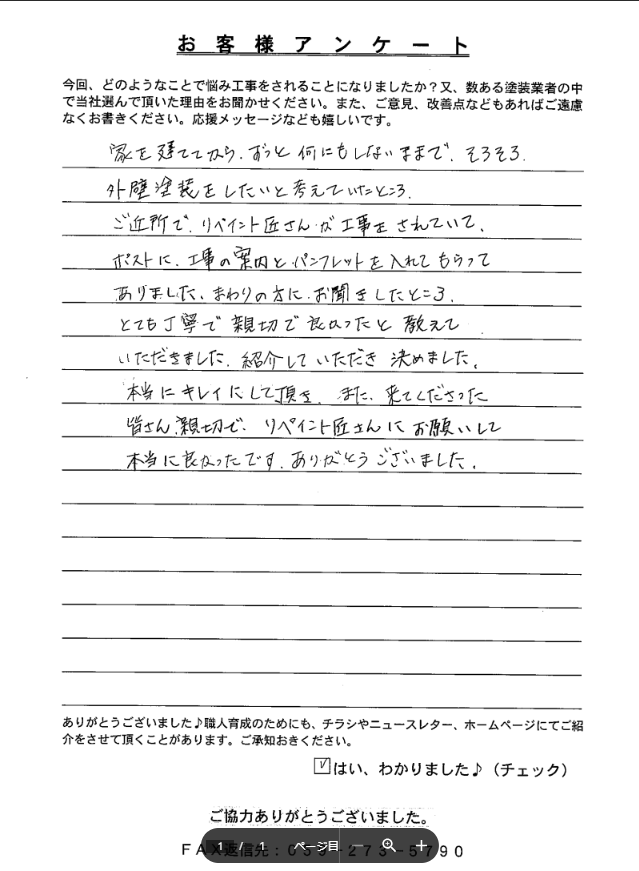 お客様アンケート
今回、どのようなことで悩み工事をされることになりましたか？又、数ある塗装業者の中
で当社選んで頂いた理由をお聞かせください。また、ご意見、改善点などもあればご遠慮
なくお書きください。応援メッセージなども嬉しいです。
家を建ててから、ずっと何にもしないままで、そろそろ、
外壁塗装をしたいと考えていたところ、
ご近所で、リペイント匠さんが工事をされていて、
ポストに、工事の案内とパンフレットを入れてもらって
ありました、まわりの方に、お聞きしたところ、
とても丁寧で親切で良かったと教えて
いただきました、紹介していただき決めました。
本当にキレイにして頂き、また、来てくださった
皆さん、親切で、リペイント匠さんにお願いして
本当に良かったです、ありがとうございました。
ありがとうございました♪職人育成のためにも、チラシやニュースレター、ホームページにてご紹
介をさせて頂くことがあります。ご承知おきください。
はい、わかりました♪（チェック）
ご協力ありがとうございました。
ＦＡＸ返信先：０５９－２７３－５７９０
ページ 1 / 1